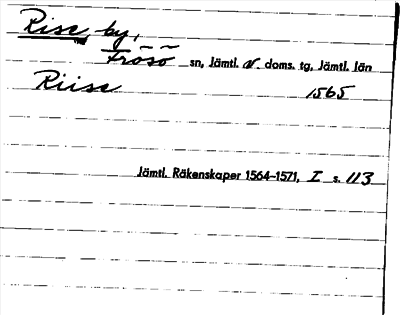 Rise, by,
Frösö sn, Jämtl. V. doms. tg, Jämtl. län
Riise 1565
Jämtl. Räkenskaper 1564–1571, I s. 113